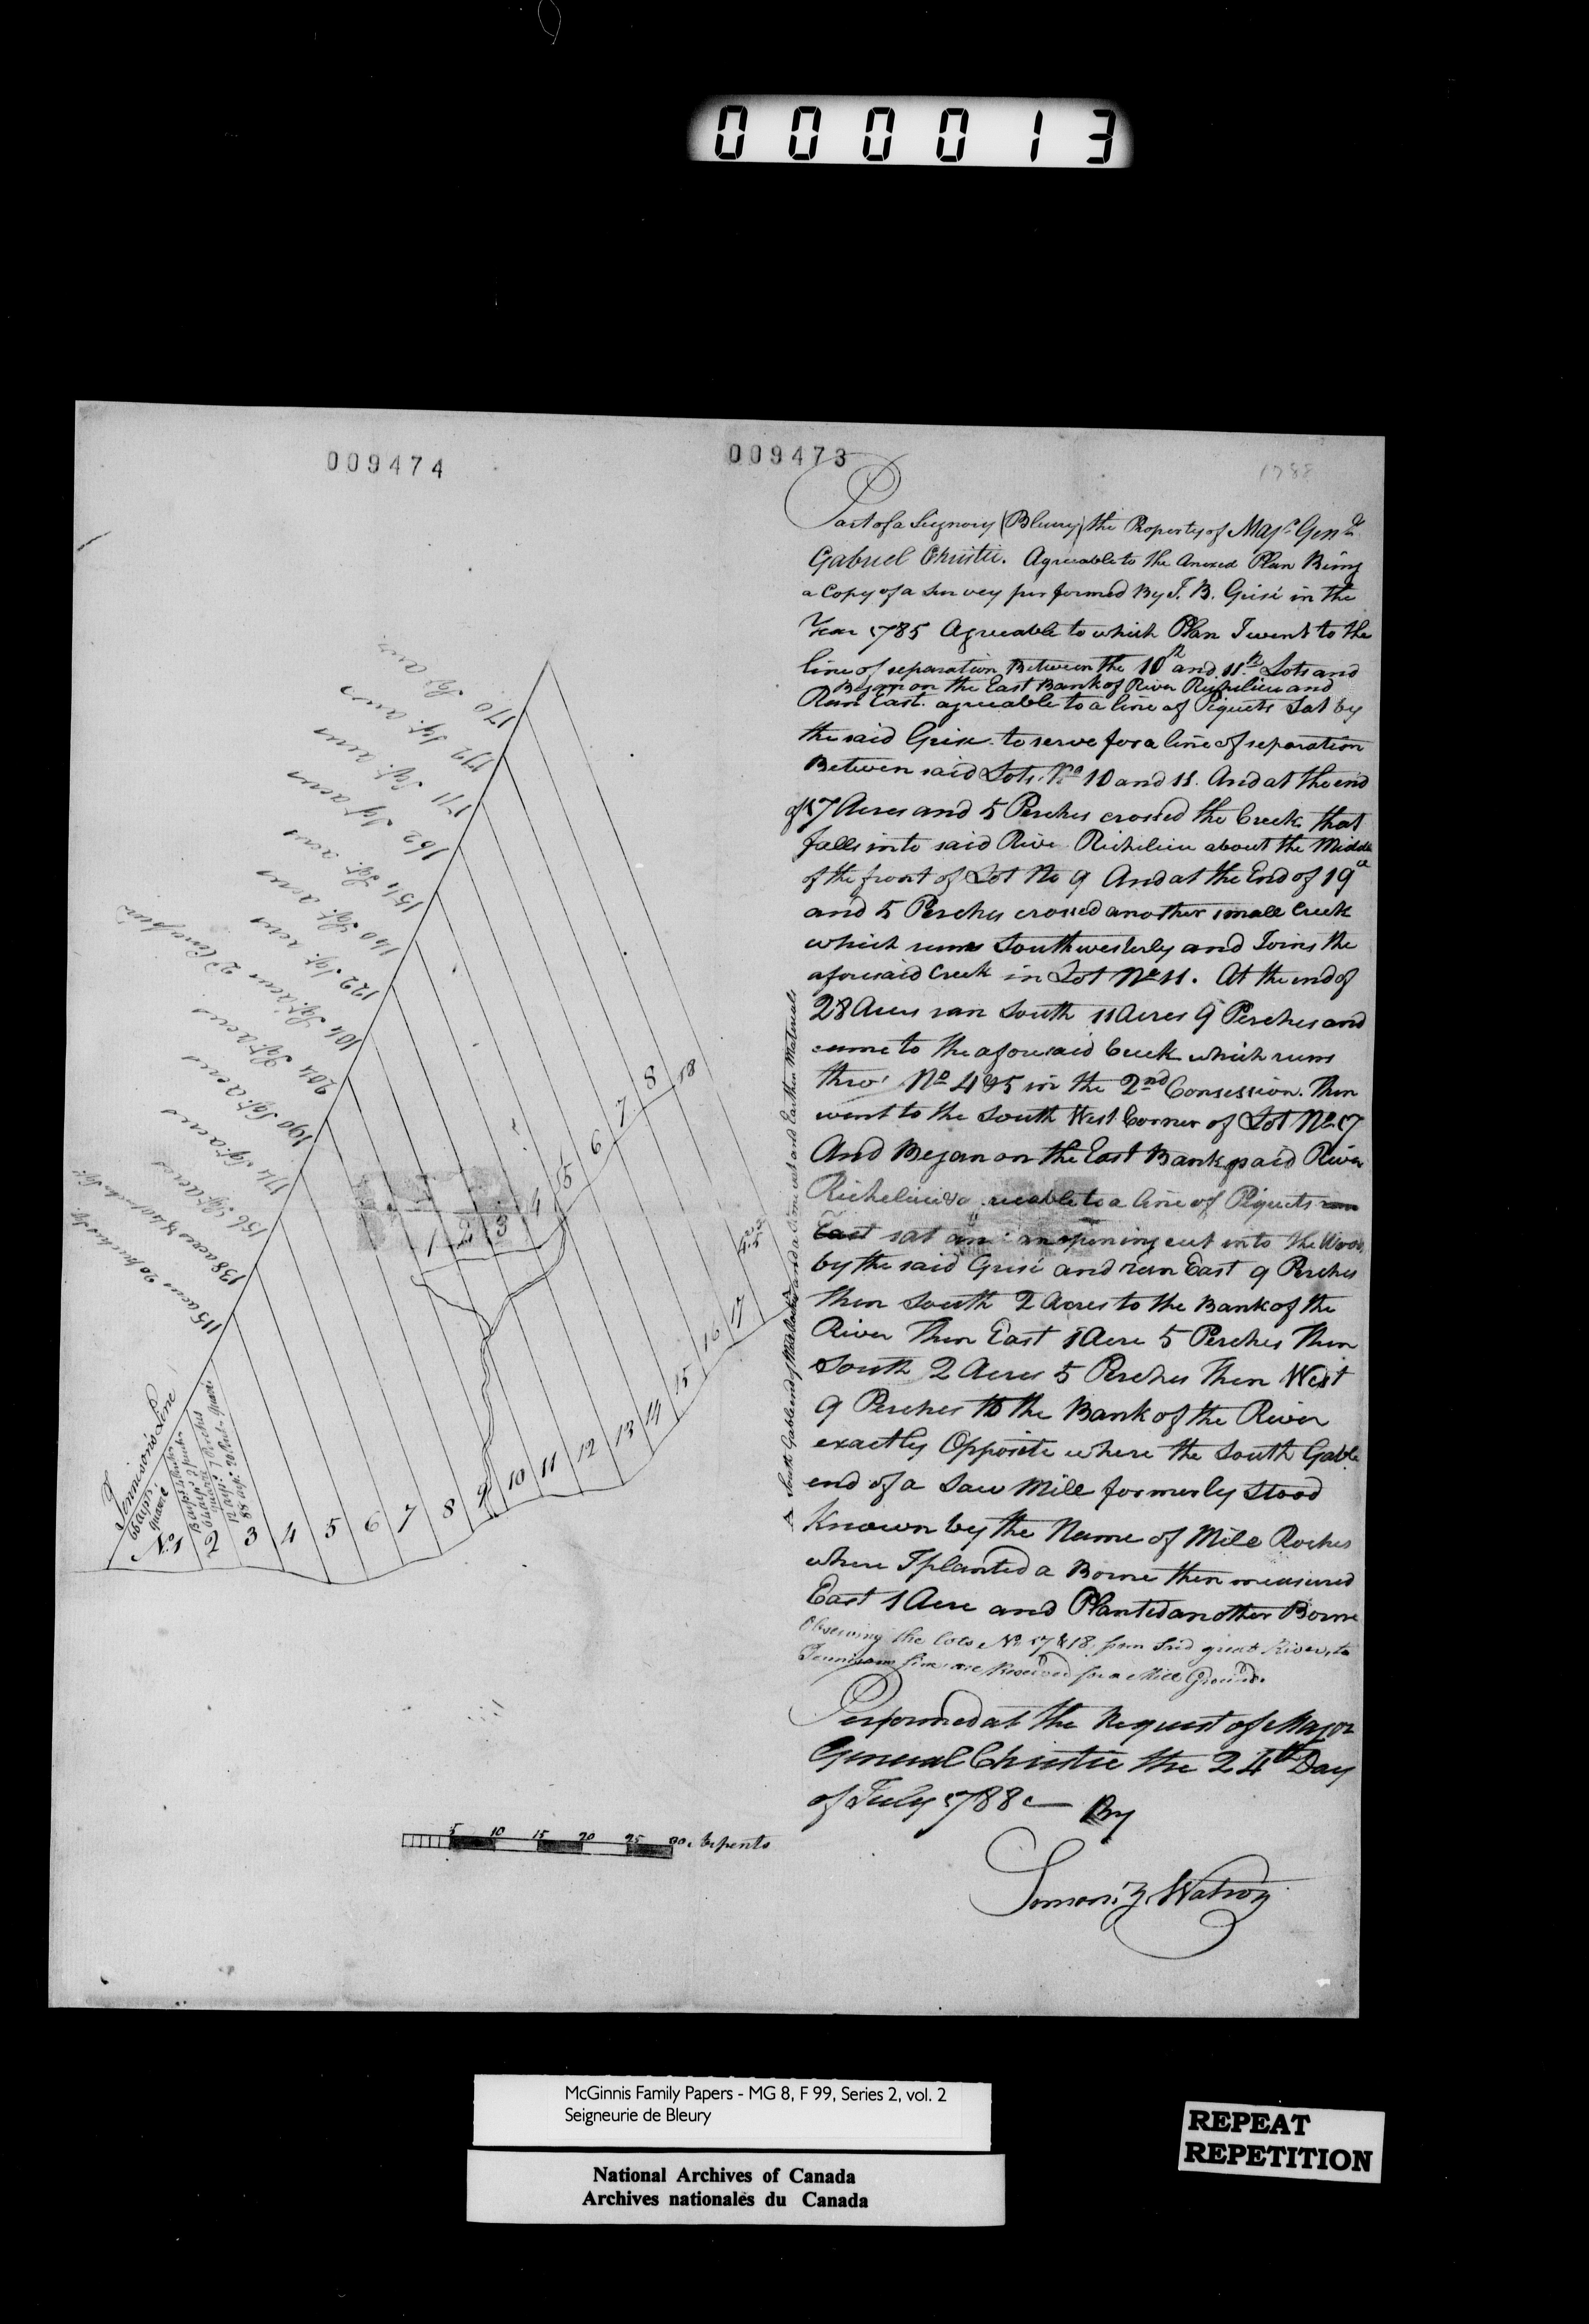 000013
009474
009473
1788
Part of a Seignory (Bleury) the Property of Majr. Genl.
Gabriel Christie. Agreeable to the Anexed Plan Being
a Copy of a Survey performed By J. B. Grisé in the
Year 1785 Agreeable to which Plan I went to the
line of separation Between the 10th and 11th Lots and
Began on the East Bank of River Richelieu and
Run East. agreeable to a line of Piquets Sat by
the said Grise to serve for a line of separation
Between said Lots. No 10 and 11. And at the end
of 17 Acres and 5 Perches crossed the Creek that
falls into said River Richelieu about the Middle
of the front of Lot No 9 And at the End of 19 a
and 5 Perches crossed another small Creek
which runs Southwesterly and Joins the
aforesaid Creek in Lot No 11. At the end of
28 Acres ran South 11 Acres 9 Perches and
came to the aforesaid Creek which runs
thro' No 4 & 5 in the 2nd Consession. Then
went to the South West Corner of Lot No 17
And Began on the East Bank said River
Richelieu & agreeable to a line of Piquets
East sat an opening cut into the Woods
by the said Grisé and run East 9 Perches
then South 2 Acres to the Bank of the
River Then East 1 Acre 5 Perches Then
South 2 Acres 5 Perches Then West
9 Perches to the Bank of the River
exactly Opposite where the South Gable
end of a Saw Mill formerly Stood
Known by the Name of Mile Roches
where I planted a Borne then measured
East 1 Acre and Planted another Borne
Observing the lots No 17 & 18. from said great River, to
Tennisons line are Reserved for a Mill Ground.
Performed at the Request of Major
General Christie the 24th Day
of July 1788 By
Simon Z Watson
South Gable end of Mile Roches and a lime and Earthen Materials
170 Sqr. acres
179 Sqr. acres
171 Sqr. acres
162 Sqr acres
154 Sqr. acres
140 Sqr. acres
122 Sqr. acres
104 Sqr. acres 2d Concession
204 Sqr. acres
190 Sqr. acres
174 Sqr acres
156 Sqr acres
138 acres & 40 perches Sqr.
115 acres 20 perches Sqr.
Tennison's Line
66 arps.
quarré
No 1 2 3 4 5 6 7 8 9 10 11 12 13 14 15 16 17
1 2 3 4 5 6 7 8 18
5 10 15 20 25 30 Arpents
McGinnis Family Papers - MG 8, F 99, Series 2, vol. 2
Seigneurie de Bleury
National Archives of Canada
Archives nationales du Canada
REPEAT
REPETITION